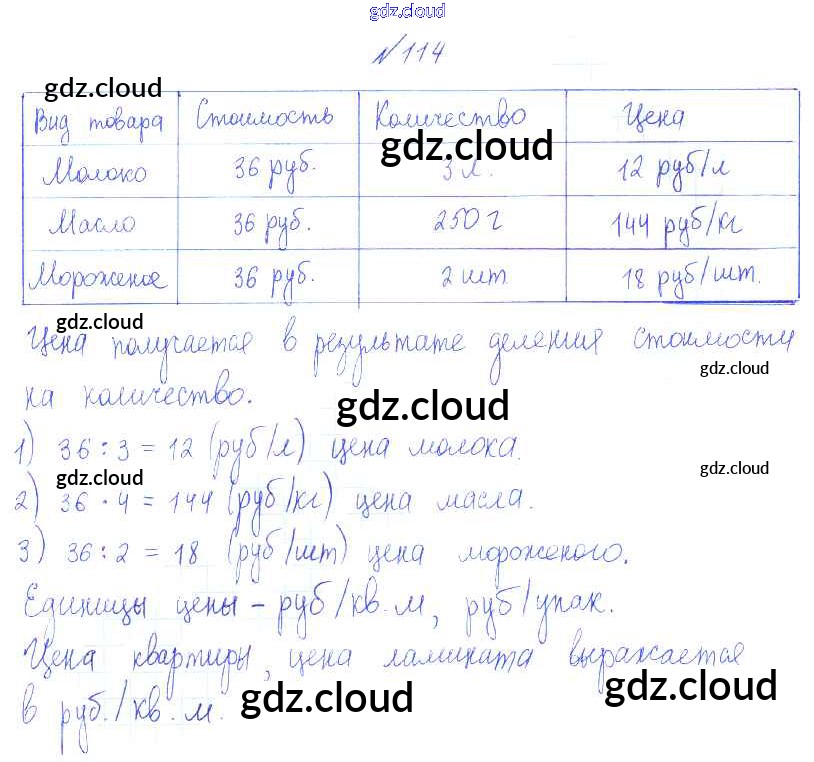 gdz.cloud
№ 114
gdz.cloud
Вид товара Стоимость Количество Цена
gdz.cloud
Молоко 36 руб. 3 л. 12 руб/л
Масло 36 руб. 250 г 144 руб/кг
Мороженое 36 руб. 2 шт 18 руб/шт.
gdz.cloud
Цена получается в результате деления стоимости
gdz.cloud
на количество.
gdz.cloud
1) 36 : 3 = 12 (руб/л) цена молока.
gdz.cloud gdz.cloud
2) 36 · 4 = 144 (руб/кг) цена масла.
3) 36 : 2 = 18 (руб/шт) цена мороженого.
Единицы цены – руб/кв.м, руб/упак.
Цена квартиры, цена ламината выражается
gdz.cloud gdz.cloud
в руб./кв.м.